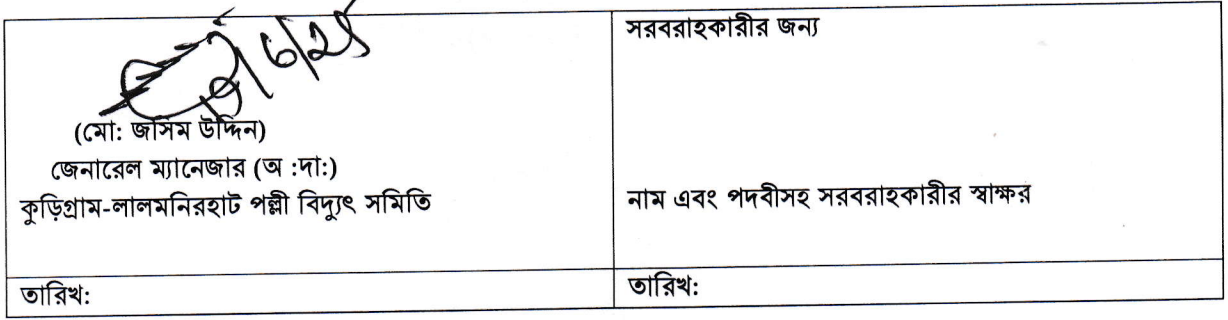 (মো: জসিম উদ্দিন)
জেনারেল ম্যানেজার (অ :দা:)
কুড়িগ্রাম-লালমনিরহাট পল্লী বিদ্যুৎ সমিতি
তারিখ:
সরবরাহকারীর জন্য
নাম এবং পদবীসহ সরবরাহকারীর স্বাক্ষর
তারিখ: